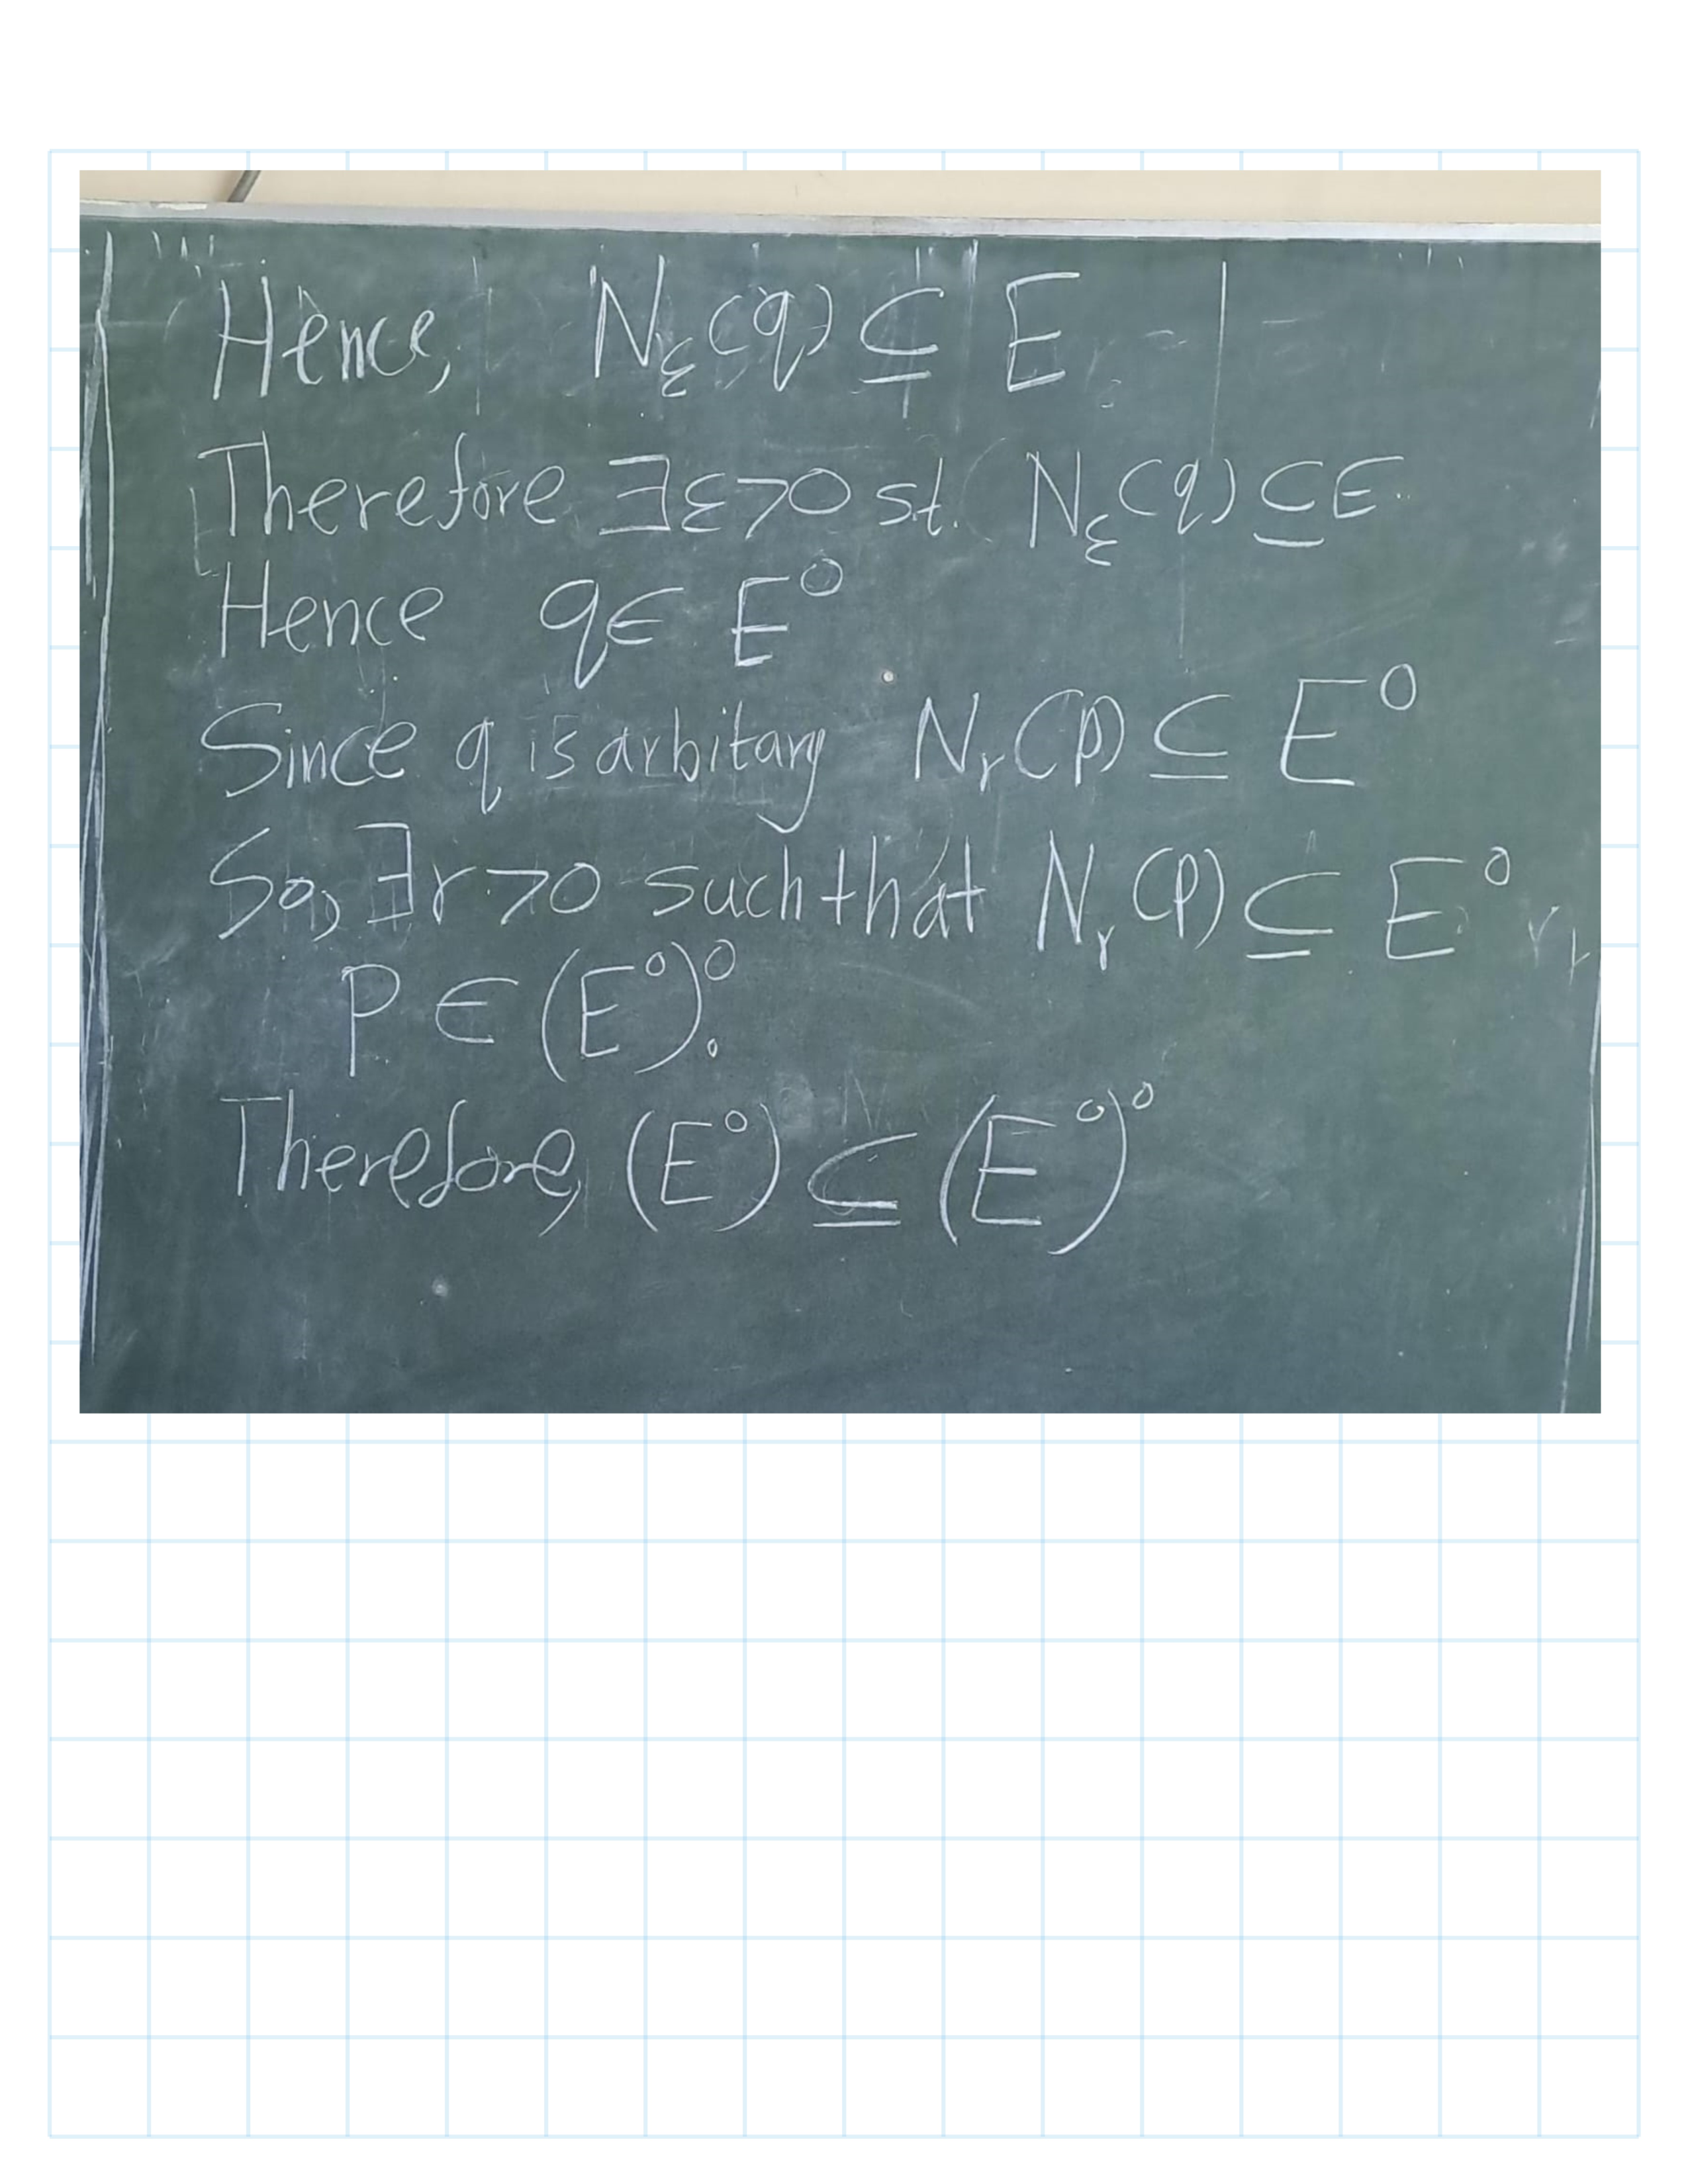 Hence, N_ε(q) ⊆ E
Therefore ∃ε>0 s.t. N_ε(q) ⊆ E
Hence q ∈ E⁰
Since q is arbitary N_r(p) ⊆ E⁰
So, ∃r>0 such that N_r(p) ⊆ E⁰
p ∈ (E⁰)⁰.
Therefore, (E⁰) ⊆ (E⁰)⁰